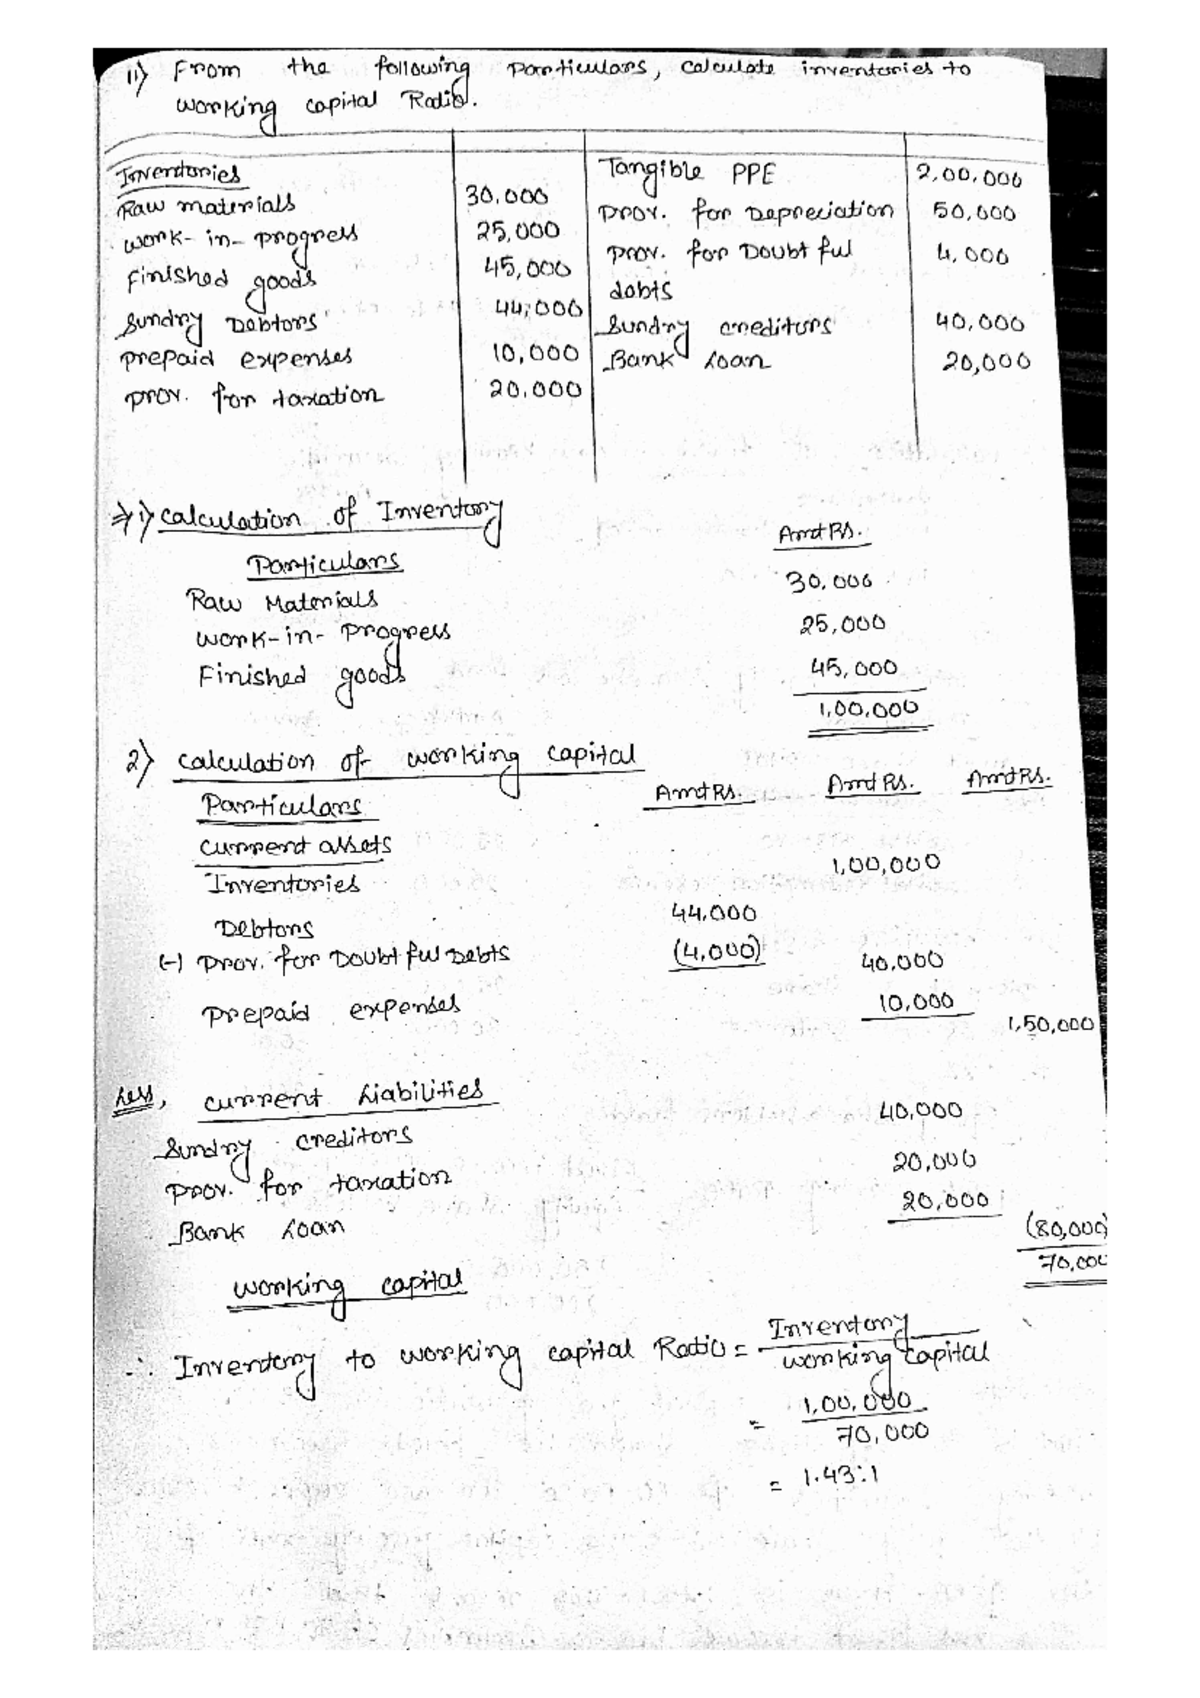 11) From the following particulars, calculate inventories to
working capital Ratio.
Inventories
Raw materials 30,000
work-in-progress 25,000
Finished goods 45,000
Sundry Debtors 44,000
prepaid expenses 10,000
prov. for taxation 20,000
Tangible PPE 2,00,000
prov. for Depreciation 50,000
prov. for Doubtful 4,000
debts
Sundry creditors 40,000
Bank Loan 20,000
⇒ 1) calculation of Inventory
Particulars Amt Rs.
Raw Materials 30,000
work-in-progress 25,000
Finished goods 45,000
1,00,000
2) calculation of working capital
Particulars Amt Rs. Amt Rs. Amt Rs.
current assets
Inventories 1,00,000
Debtors 44,000
(-) prov. for Doubtful Debts (4,000) 40,000
prepaid expenses 10,000 1,50,000
Less, current Liabilities
Sundry creditors 40,000
prov. for taxation 20,000
Bank Loan 20,000 (80,000)
working capital 70,000
∴ Inventory to working capital Ratio = Inventory
working capital
= 1,00,000
70,000
= 1.43:1